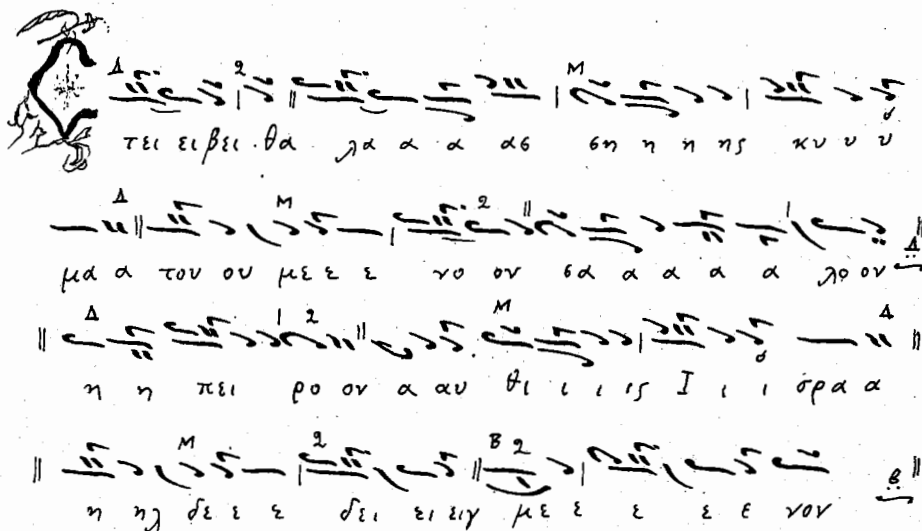 Δ 2 Μ
Ϲτει ει βει θα λα α α ας ση η η ης κυ υ υ
Δ Μ 2 Δ
μα α του ου με ε ε νο ον σα α α α α λο ον
Δ 2 Μ Δ
η η πει ρο ον α αυ θι ι ι ις Ι ι ι σρα α
Μ 2 Β 2 Β
η ηλ δε ε ε δει ει ειγ με ε ε ε ε νον